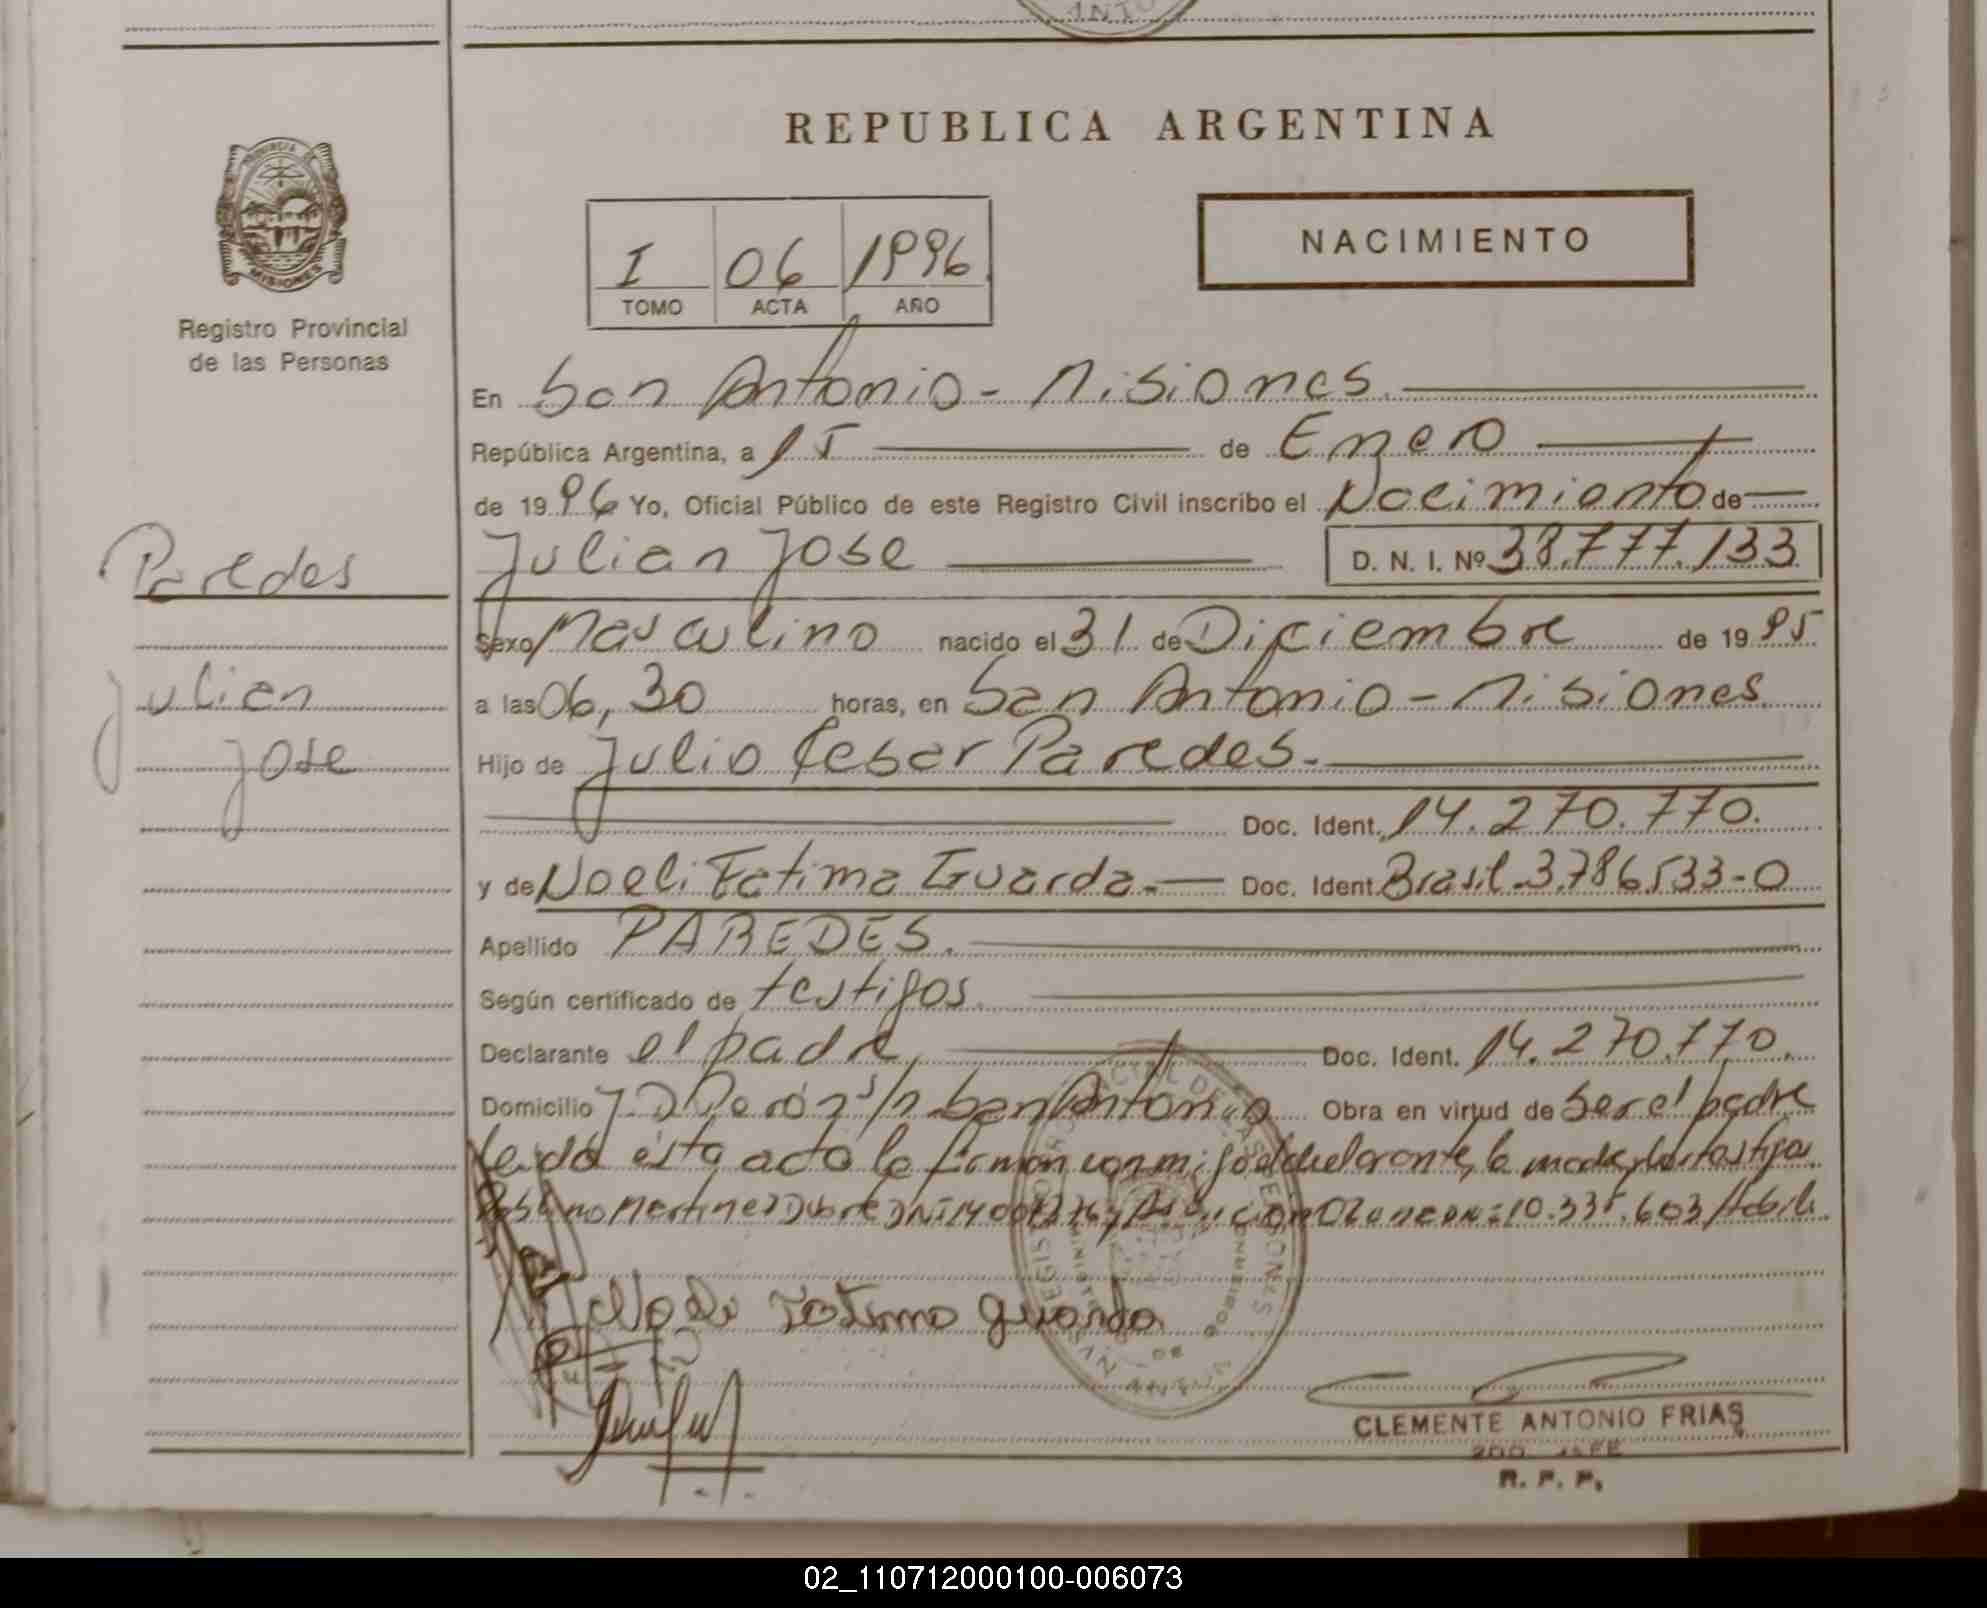 REPUBLICA ARGENTINA
PROVINCIA DE
MISIONES
Registro Provincial
de las Personas
I 06 1996
TOMO ACTA AÑO
NACIMIENTO
En San Antonio - Misiones.
República Argentina, a 15 de Enero
de 1996 Yo, Oficial Público de este Registro Civil inscribo el Nacimiento de
Paredes
Julian Jose D. N. I. Nº 38.777.133
Sexo Masculino nacido el 31 de Diciembre de 1995
Julian
a las 06,30 horas, en San Antonio - Misiones.
Jose
Hijo de Julio Cesar Paredes.
Doc. Ident. 14.270.770.
y de Noeli Fatima Guarda. Doc. Ident. Brasil-3.786.533-0
Apellido PAREDES.
Según certificado de testigos.
Declarante el padre, Doc. Ident. 14.270.770.
Domicilio J.D Perón s/n San Antonio Obra en virtud de ser el padre
leida ésta acta la firman conmigo el declarante, la madre y los testigos
Martinez Dubre DNI 10.335.603
Noeli Fatima Guarda
CLEMENTE ANTONIO FRIAS
R. P. P.
02_110712000100-006073